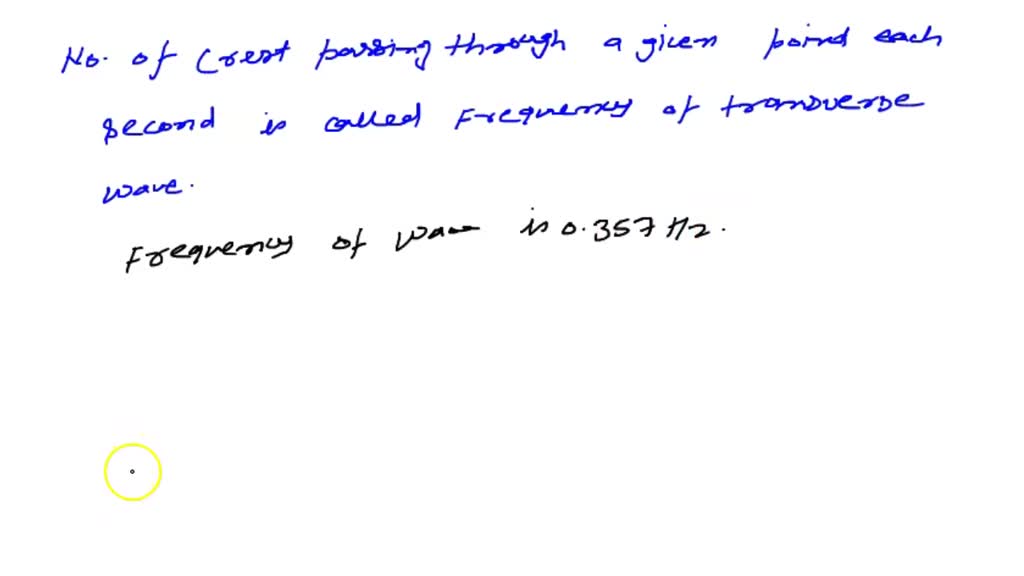 No. of Crest passing through a given point each
second is called Frequency of transverse
wave.
Frequency of wave is 0.357 Hz.